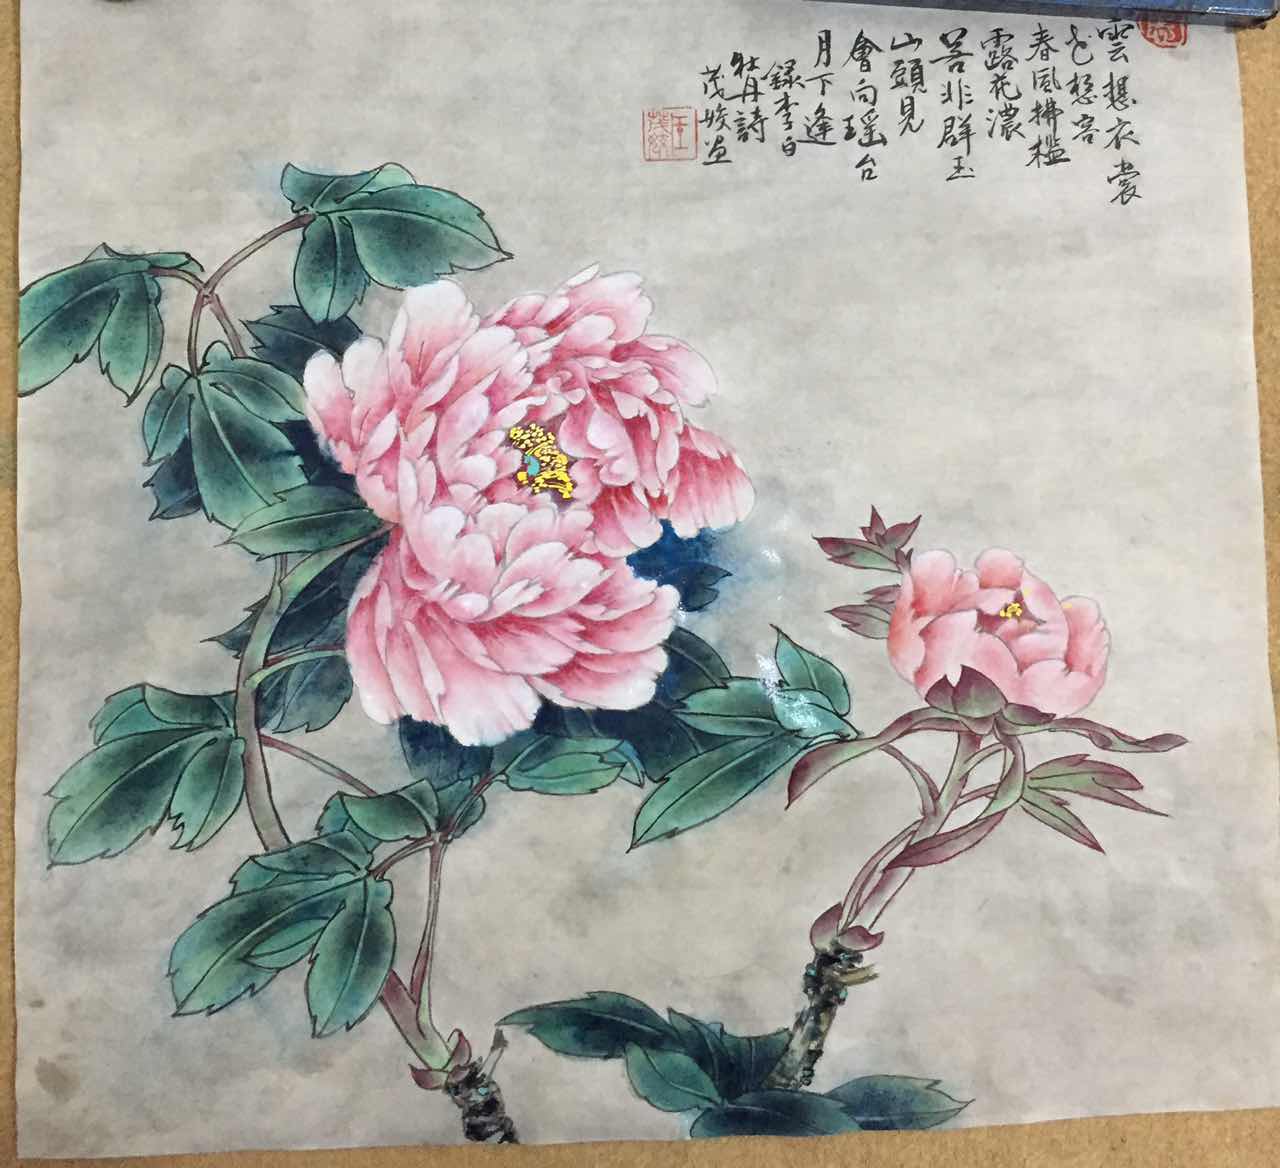 雲想衣裳
花想容
春風拂檻
露花濃
若非群玉
山頭見
會向瑶台
月下逢
録李白
牡丹詩
茂姣画